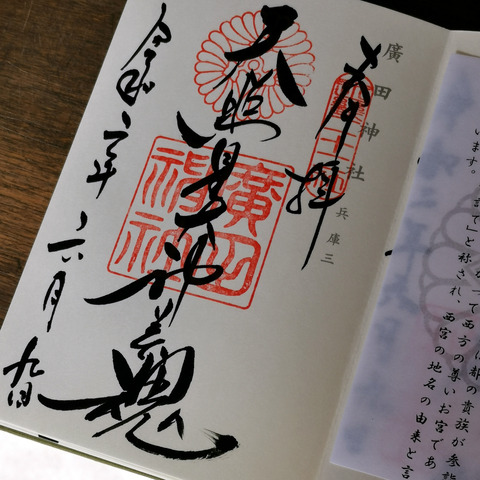 廣田神社
兵庫三
奉拝
天照
神
魂
廣田
神社
令和二年六月九日
は都の貴族が参詣
って西方の尊いお宮であ
」と称され、西宮の地名の由来と言
います。